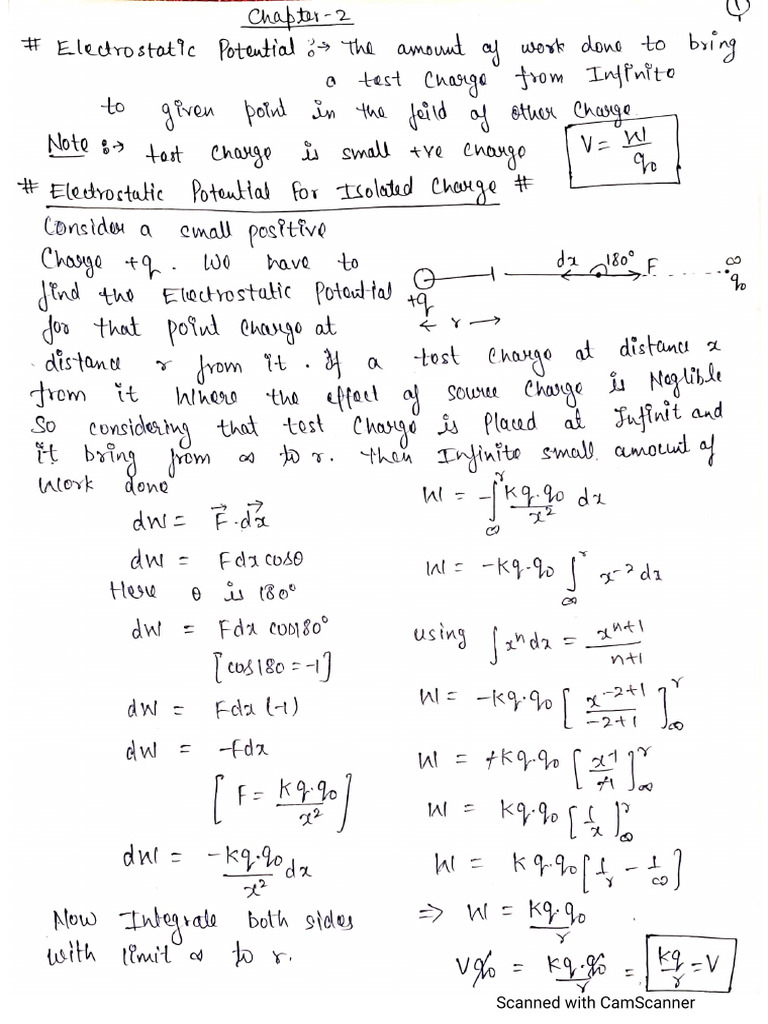 Chapter-2
1
# Electrostatic Potential :→ The amount of work done to bring
a test charge from Infinite
to given point in the feild of other charge.
Note :→ test charge is small +ve charge
V = W/q₀
# Electrostatic Potential for Isolated Charge #
Consider a small positive
Charge +q. We have to
find the Electrostatic Potential
for that point charge at
distance r from it. If a test charge at distance x
from it Where the effect of source charge is Neglible
So considering that test charge is Placed at Infinit and
it bring from ∞ to r. then Infinite small amount of
Work done
dx 180° F ∞
q₀
+q
← r →
dW = F⃗·dx⃗
dW = Fdx cosθ
Here θ is 180°
dW = Fdx cos180°
[cos180 = -1]
dW = Fdx (-1)
dW = -fdx
[F = kq·q₀/x²]
dW = -kq·q₀/x² dx
Now Integrate both sides
with limit ∞ to r.
W = -∫∞^r kq·q₀/x² dx
W = -kq·q₀ ∫∞^r x⁻² dx
using ∫xⁿdx = xⁿ⁺¹/n+1
W = -kq·q₀ [x⁻²⁺¹/-2+1]∞^r
W = +kq·q₀ [x⁻¹/+1]∞^r
W = kq·q₀ [1/x]∞^r
W = kq·q₀ [1/r - 1/∞]
⇒ W = kq·q₀/r
Vq₀ = kq·q₀/r = kq/r = V
Scanned with CamScanner